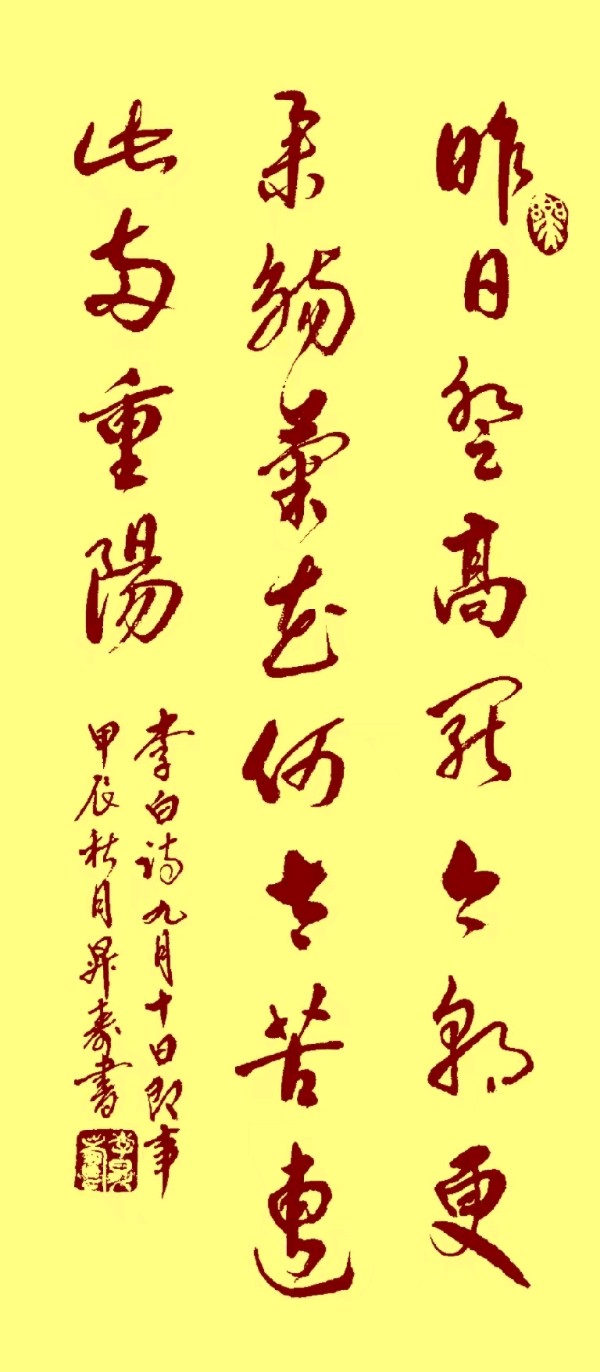 昨日登高罷今朝更
舉觴菊花何太苦遭
此兩重陽
李白詩九月十日即事
甲辰秋月昇壽書